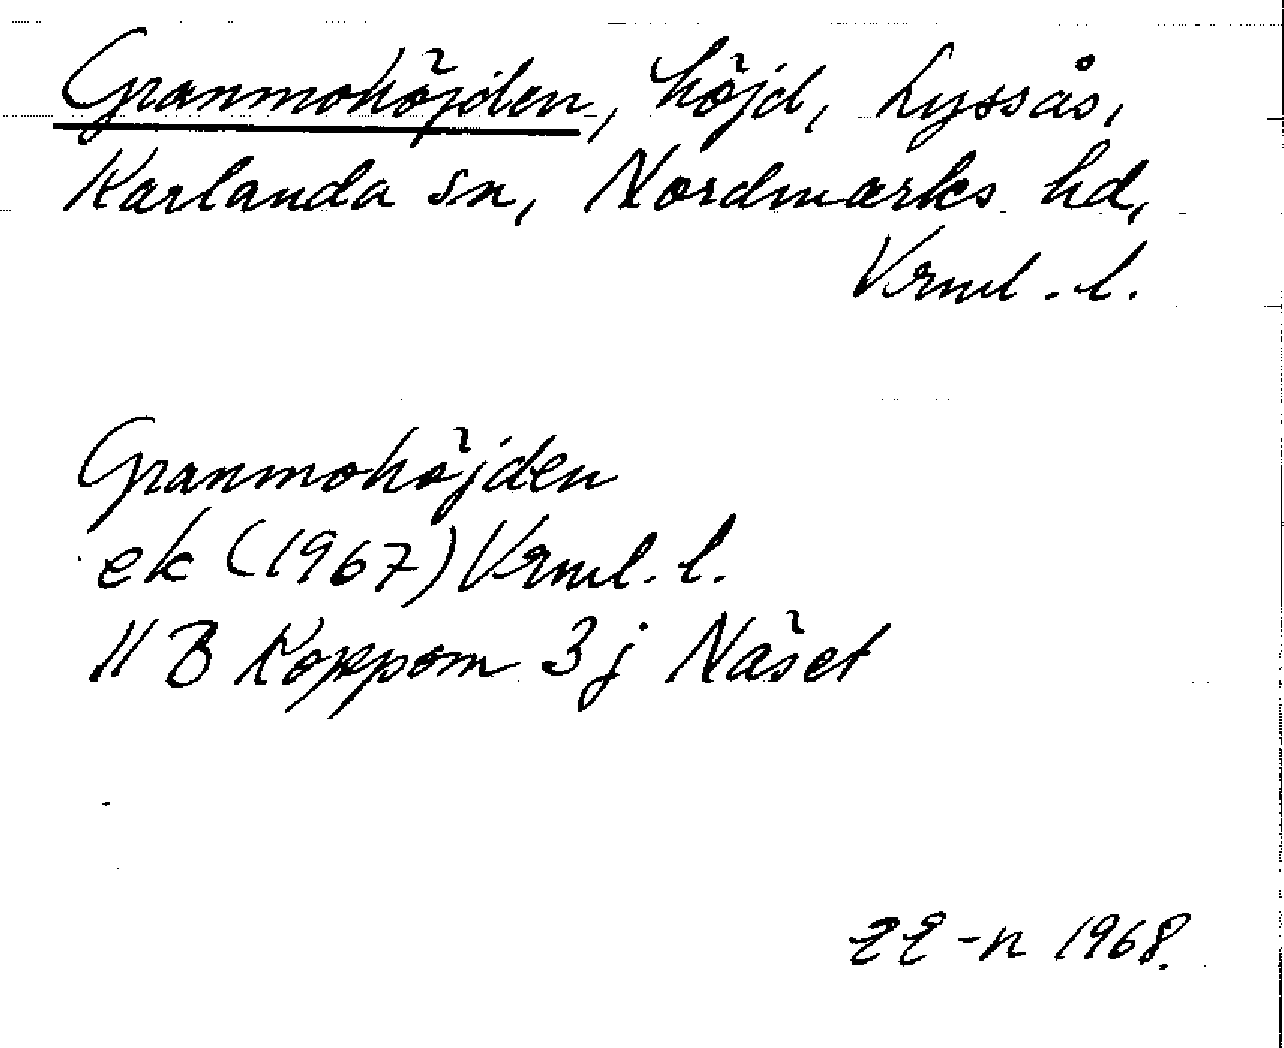 Granmohöjden, höjd, Lyssås,
Karlanda sn, Nordmarks hd,
Vrml. l.
Granmohöjden
ek (1967) Vrml. l.
11 B Koppom 3 j Näset
EE-n 1968.